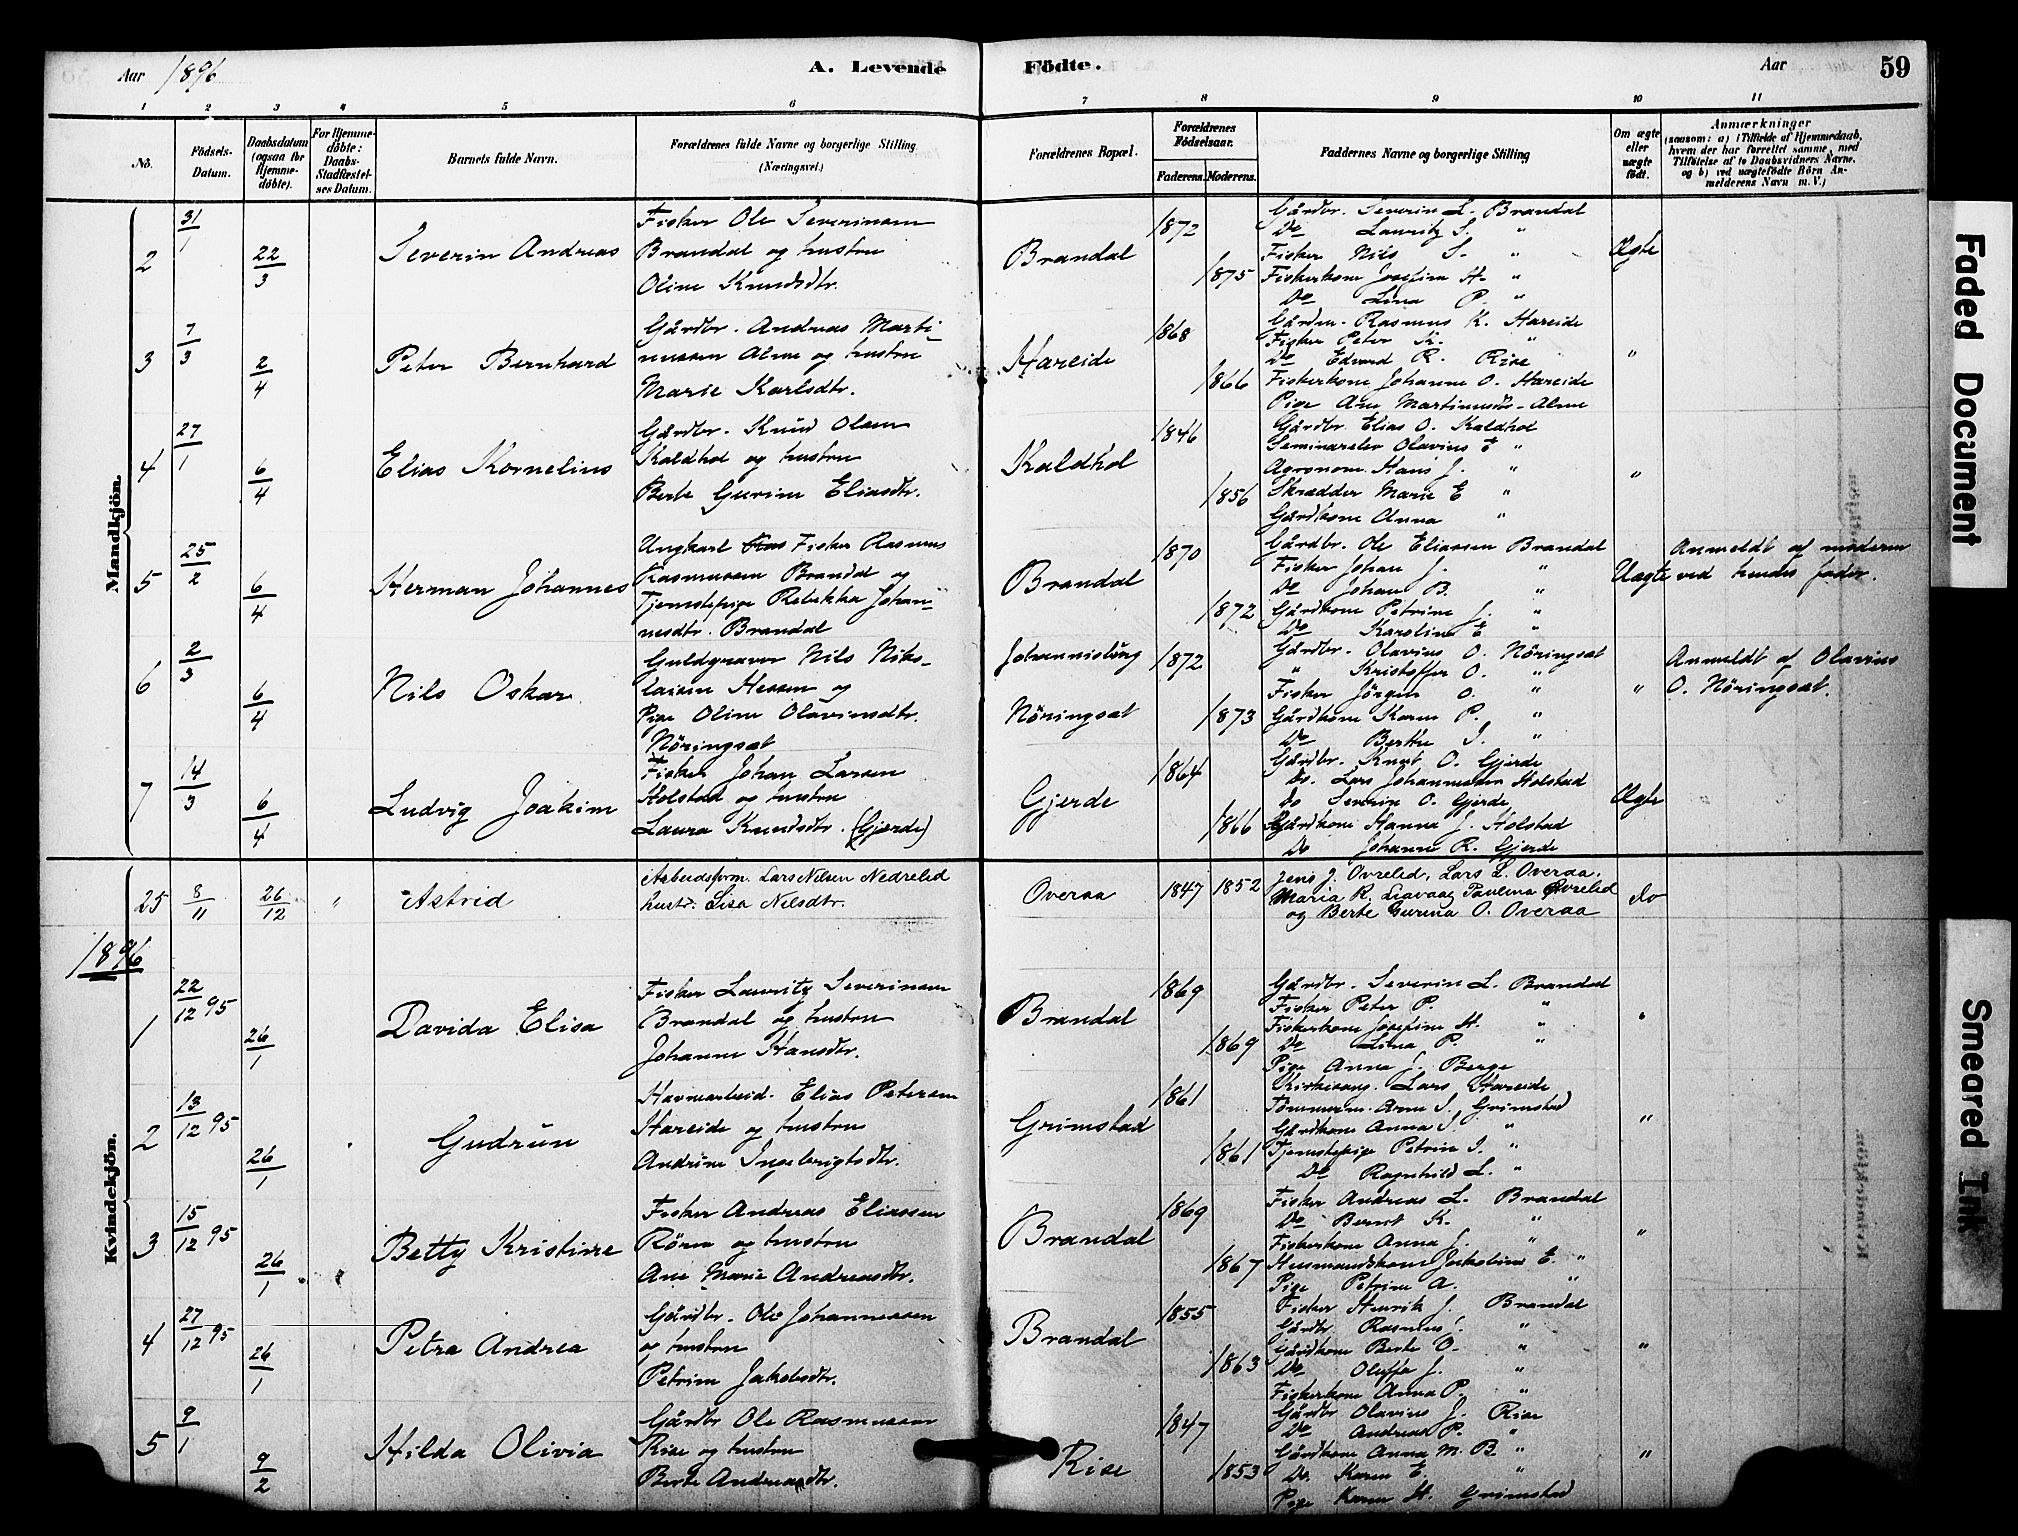 Aar 1896
A. Levende Födte.
Aar
59
1 2 3 4 5 6 7 8 9 10 11
No.
Födsels-Datum.
Daabsdatum (ogsaa for Hjemmedöbte).
For Hjemmedöbte: Daabs-Stadfæstelses Datum.
Barnets fulde Navn.
Forældrenes fulde Navne og borgerlige Stilling (Næringsvei.)
Forældrenes Bopæl.
Forældrenes Födselsaar.
Faderens. Moderens.
Faddernes Navne og borgerlige Stilling
Om ægte eller uægte födt.
Anmærkninger
(saasom: a) i Tilfælde af Hjemmedaab, hvem der har forrettet samme, med Tilföielse af to Daabsvidners Navne, og b) ved uægtefödte Börn Anmelderens Navn m. V.)
Mandkjön.
2 31/1 22/3 Severin Andreas
Fisker Ole Severinsen
Brandal og hustru
Oline Knudsdtr.
Brandal 1872 1875
Gårdbr. Severin L. Brandal
Do Lauritz S. "
Fisker Nils S. "
Fiskerkone Josefine H. "
Do Lina P. "
Ægte
3 7/3 2/4 Peter Bernhard
Gårdbr. Andreas Marti-
nussen Alme og hustru
Marie Karlsdtr.
Hareide 1868 1866
Gårdm. Rasmus K. Hareide
Fisker Peter K. "
Do Edvard R. Rise
Fiskerkone Johanne O. Hareide
Pige Ane Martinusdtr. Alme
"
4 27/1 6/4 Elias Kornelius
Gårdbr. Knud Olsen
Kaldhol og hustru
Berte Gurine Eliasdtr.
Kaldhol 1846 1856
Gårdbr. Elias O. Kaldhol
Seminarelev Olavius E "
Agronom Hans J. "
Skrædder Marie E "
Gårdkone Anna "
"
5 25/2 6/4 Herman Johannes
Ungkarl Fisker Rasmus
Rasmussen Brandal og
Tjenestepige Rebekka Johan-
nesdtr. Brandal
Brandal 1870 1872
Gårdbr. Ole Eliassen Brandal
Fisker Johan J. "
Do Johan B. "
Gårdkone Petrine J. "
Do Karoline E "
Uægte
Anmeldt af moderen
ved hendes fader.
6 2/3 6/4 Nils Oskar
Guldgraver Nils Niko-
laisen Hessen og
Pige Oline Olavinsdtr.
Nöringsæt
Johannisburg
Nöringsæt 1872 1873
Gårdbr. Olavius O. Nöringsæt
" Kristoffer O. "
Fisker Jörgen O. "
Gårdkone Karen P. "
Do Berthe I. "
"
Anmeldt af Olavius
O. Nöringsæt.
7 14/3 6/4 Ludvig Joakim
Fisker Johan Larsen
Holstad og hustru
Laura Knudsdtr. (Gjerde)
Gjerde 1864 1866
Gårdbr. Knut O. Gjerde
Do. Lars Johannessen Holstad
do Severin O. Gjerde
Gårdkone Hanna J. Holstad
Do Johanne R. Gjerde
Ægte
Kvindekjön.
25 8/11 26/12 " Astrid
Arbeidsform. Lars Nilsen Nedrelid
hustr. Lisa Nilsdtr.
Overaa 1847 1852
Jens J. Ovrelid, Lars L. Overaa,
Maria R. Liavaag Paulina Øvrelid
og Berte Gurina O. Overaa
do
1896
1 22/12 95 26/1 Davida Elisa
Fisker Lauritz Severinsen
Brandal og hustru
Johanne Hansdtr.
Brandal 1869 1869
Gårdbr. Severin L. Brandal
Fisker Peter P. "
Fiskerkone Josefine H. "
Do Lina P. "
Pige Anna J. Berge
2 13/12 95 26/1 Gudrun
Havnearbeid. Elias Petersen
Hareide og hustru
Andrine Ingebrigtsdtr.
Grimstad 1861 1861
Kirkesang. Lars Hareide
Tömmerm. Arne I. Grimstad
Gårdkone Anna I. "
Tjenestepige Petrine I. "
Do Ragnhild L. "
"
3 15/12 95 26/1 " Betty Kristine
Fisker Andreas Eliassen
Rören og hustru
Ane Marie Andreasdtr.
Brandal 1869 1867
Fisker Andreas L. Brandal
Do Bernt K. "
Fiskerkone Anna J. "
Husmandskone Jakobine E. "
Pige Petrine A. "
"
4 27/12 95 26/1 Petra Andrea
Gårdbr. Ole Johannessen
og hustru
Petrine Jakobsdtr.
Brandal 1855 1863
Fisker Henrik J. Brandal
Gårdbr. Rasmus "
Gårdkone Berte O. "
Do Oluffa J. "
Fiskerkone Anna P. "
"
5 9/1 9/2 Hilda Olivia
Gårdbr Ole Rasmussen
Rise og hustru
Berte Andreasdtr.
Rise 1847 1853
Gårdbr Olavius J. Rise
Do Andreas P. "
Gårdkone Anna M. B. "
Do. Karen E. "
Pige Karen H. Grimstad
"
Faded Document
Smeared Ink